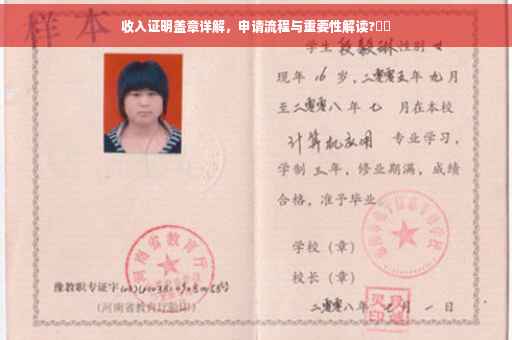 收入证明盖章详解，申请流程与重要性解读?
样本
学生 段毅琳 性别 女
现年 16 岁，二零零五年 九月
至二零零八年 七 月在本校
计算机应用 专业学习，
学制 三 年，修业期满，成绩
合格，准予毕业。
学校（章）
校长（章）
二零零八年 七 月 一 日
河南省教育厅
豫教职专证字
（河南省教育厅验印）